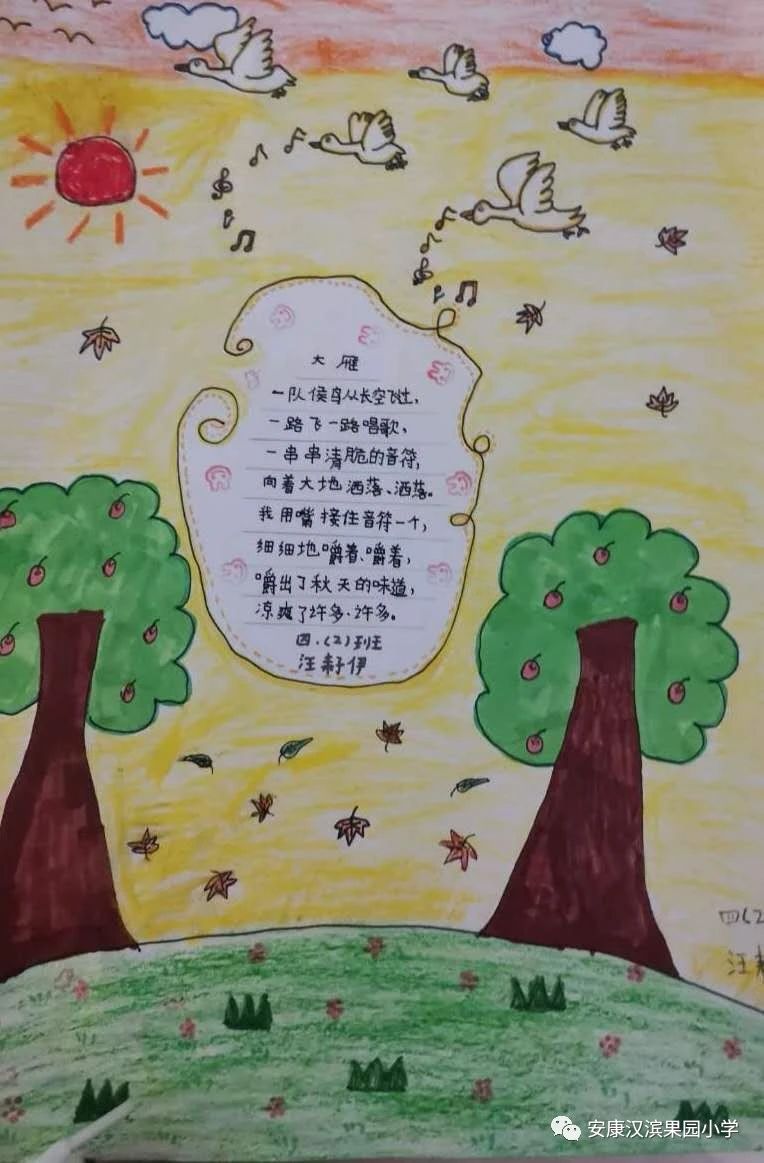 大雁
一队候鸟从长空飞过,
一路飞一路唱歌、
一串串清脆的音符,
向着大地洒落、洒落。
我用嘴接住音符一个,
细细地嚼着、嚼着,
嚼出了秋天的味道,
凉爽了许多、许多。
四.(2)班
汪耔伊
四(2
汪
安康汉滨果园小学